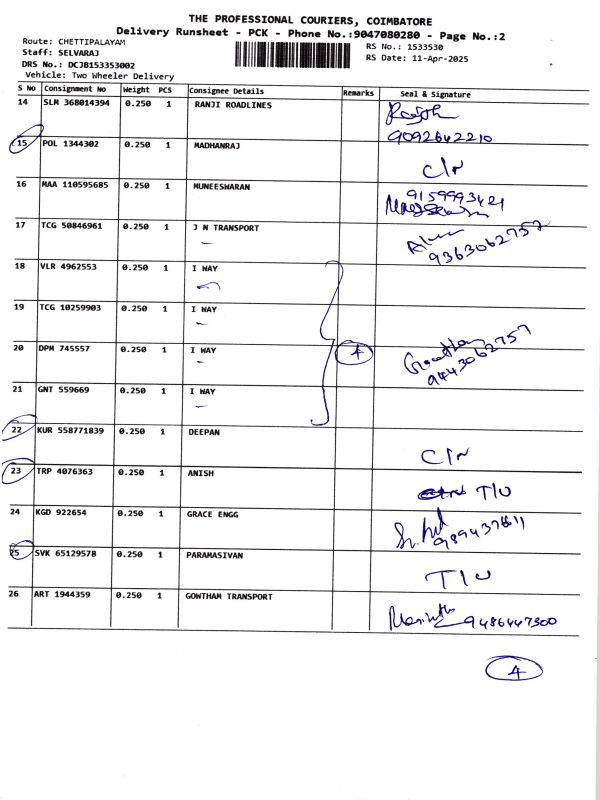 THE PROFESSIONAL COURIERS, COIMBATORE
Delivery Runsheet - PCK - Phone No.:9047080280 - Page No.:2
Route: CHETTIPALAYAM
RS No.: 1533530
Staff: SELVARAJ
RS Date: 11-Apr-2025
DRS No.: DCJB153353002
Vehicle: Two Wheeler Delivery
S No Consignment No Weight PCS Consignee Details Remarks Seal & Signature
14 SLM 368014394 0.250 1 RANJI ROADLINES
9092642210
15 POL 1344302 0.250 1 MADHANRAJ
C/n
16 MAA 110595685 0.250 1 MUNEESWARAN
9159993421
17 TCG 50846961 0.250 1 J N TRANSPORT
9363062757
18 VLR 4962553 0.250 1 I WAY
19 TCG 10259903 0.250 1 I WAY
20 DPM 745557 0.250 1 I WAY 4
9443062757
21 GNT 559669 0.250 1 I WAY
22 KUR 558771839 0.250 1 DEEPAN
C/n
23 TRP 4076363 0.250 1 ANISH
T/U
24 KGD 922654 0.250 1 GRACE ENGG
25 SVK 65129578 0.250 1 PARAMASIVAN
T/U
26 ART 1944359 0.250 1 GOWTHAM TRANSPORT
9486447300
4